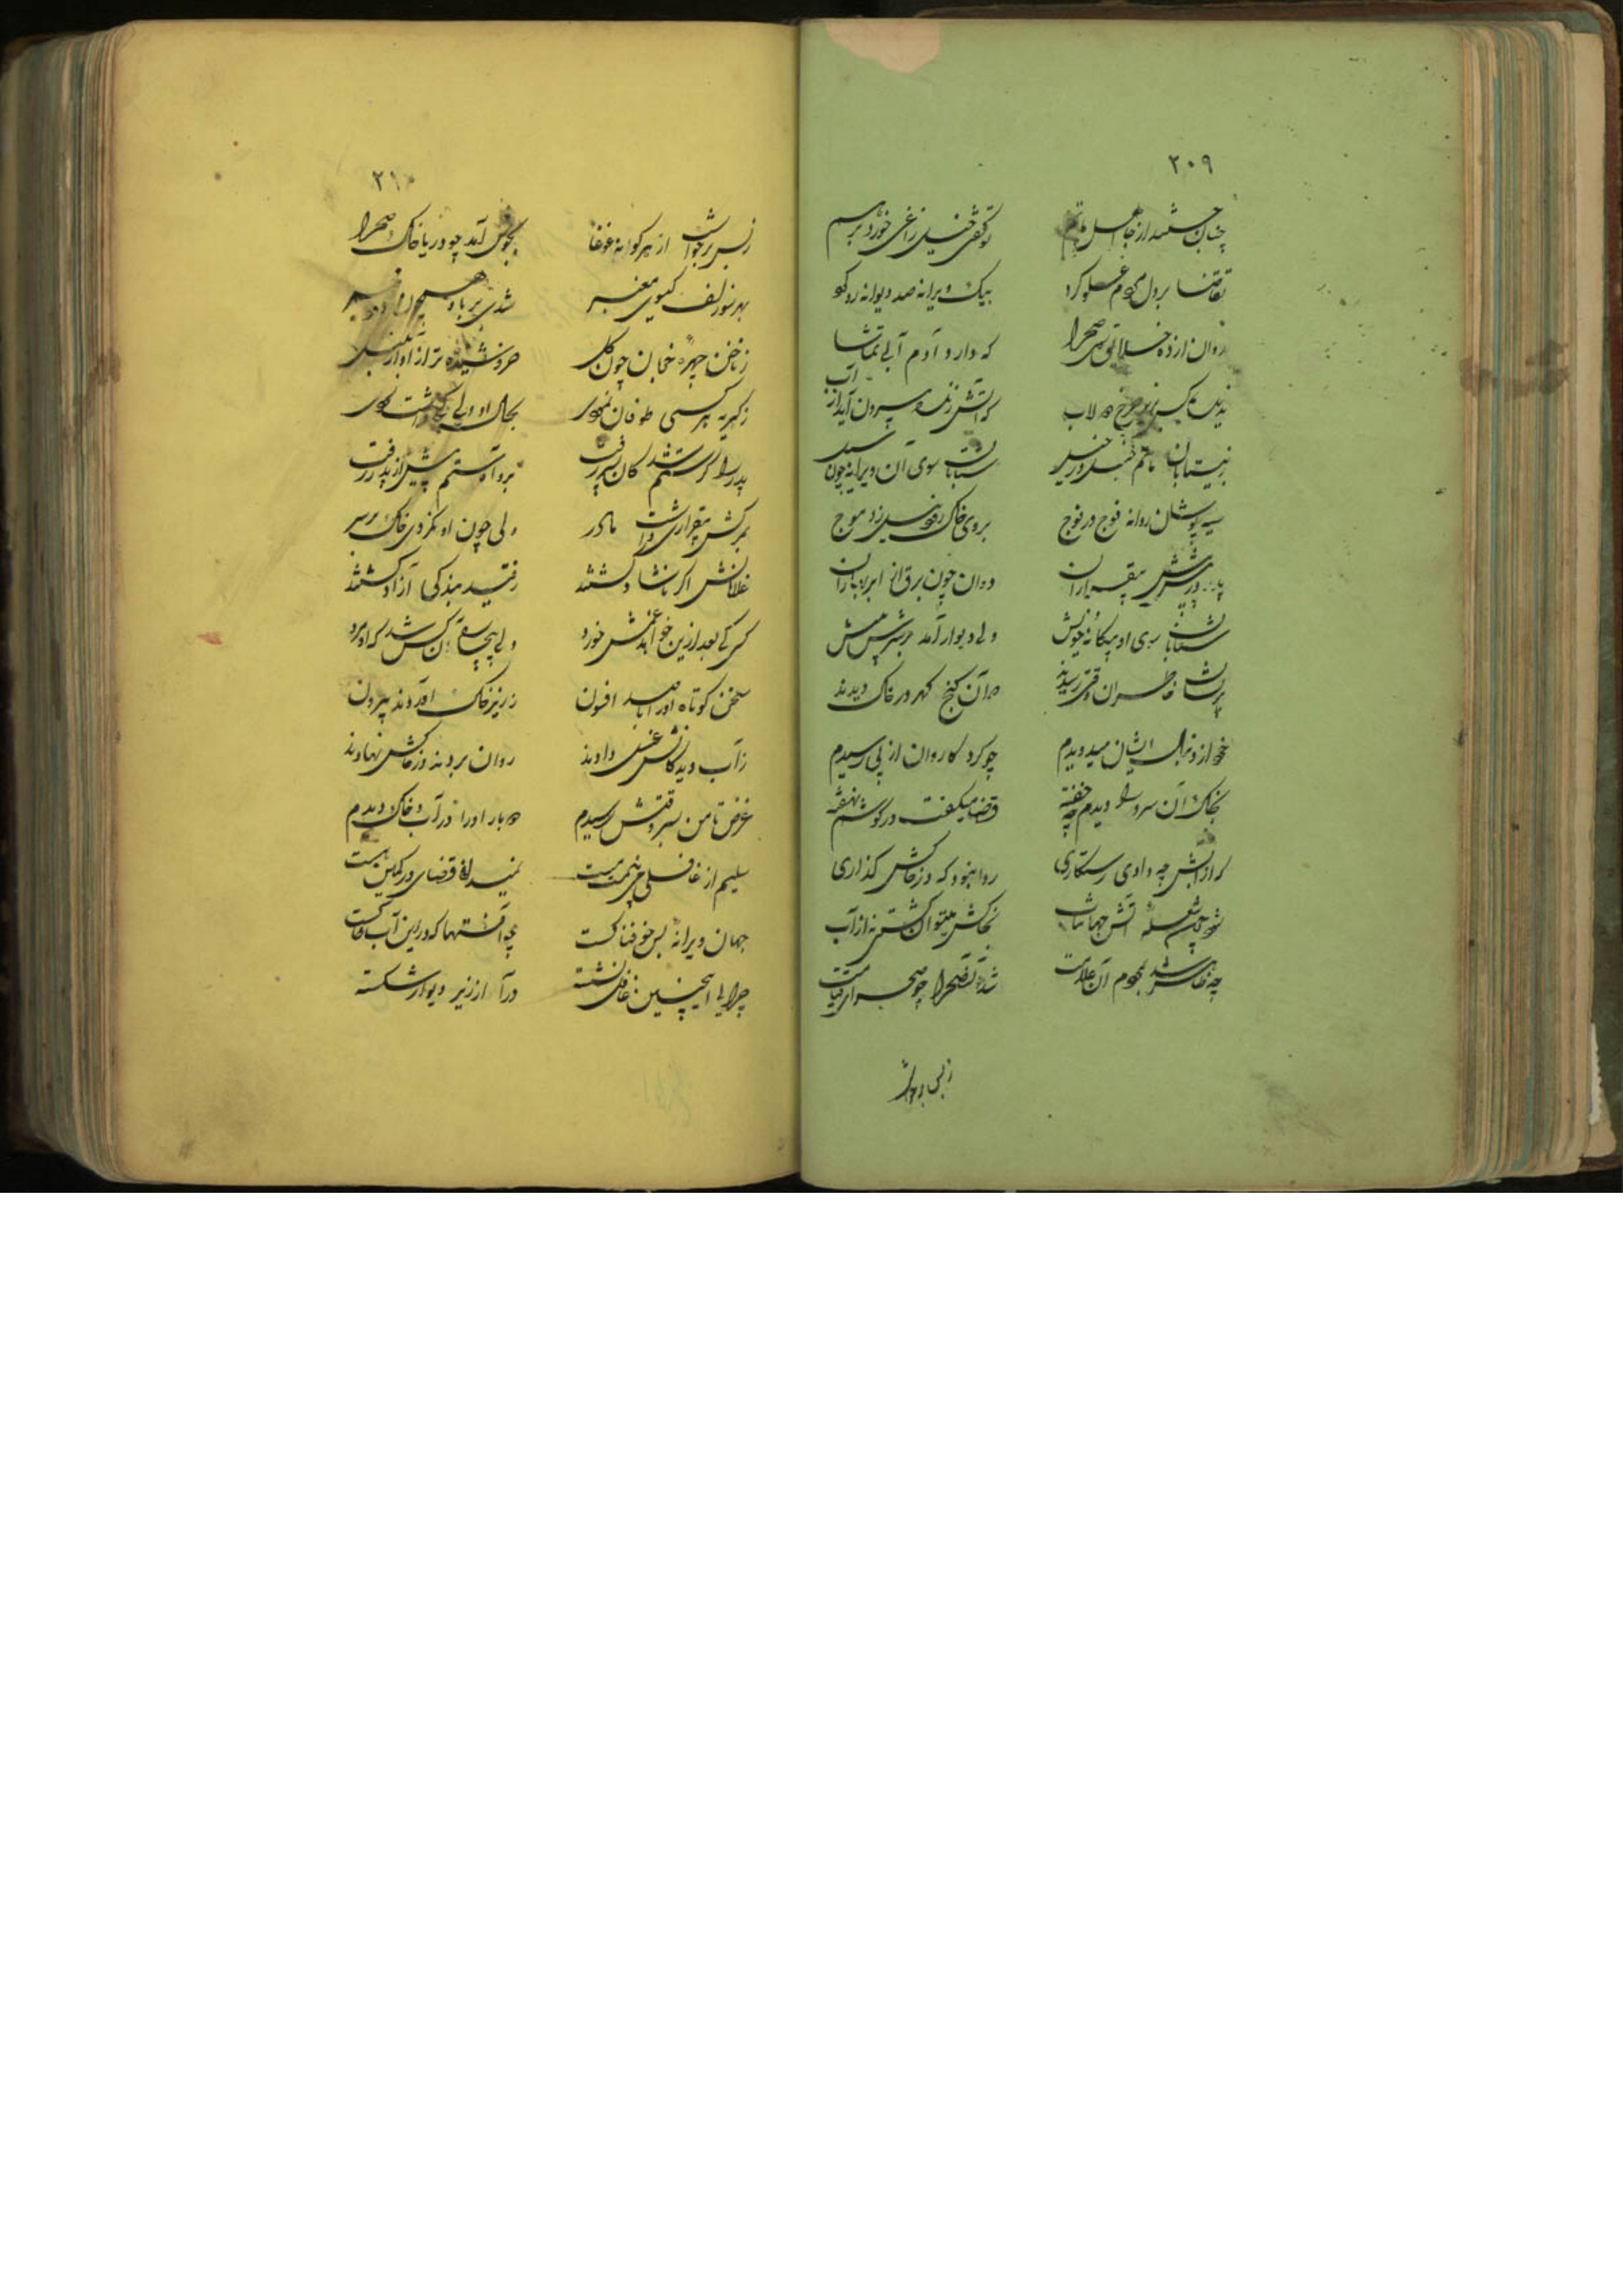 ۲۰۹
چنان جستند از جا اهل ماتم
توگفتی خیل زاغی خورد برهم
تقاضا بر دل مردم غلو کرد
بیک ویرانه صد دیوانه رو کرد
روان از ده خلایق سوی صحرا
که دارد آدم آبی تماشا
که آتش زند بیرون آید از آب
شتابان سوی آن ویرانه چون سیل
سیه پوشان روانه فوج در فوج
بروی خاک زد موج
دوان چون برق از ابر بهاران
شتابان سوی او بیگانه و خویش
ولی دیوار آمد بر سرش پیش
پریشان خاطران وقتی رسیدند
در آن کنج گهر در خاک دیدند
خود از دنبال ایشان میدویدم
چو گرد کاروان از پی رسیدم
بخاک آن سرو را دیدم چه خفته
قضا میگفت در گوشم نهفته
که از آبش چه دادی رستگاری
روا نبود که در خاکش گذاری
شود چون شعله آتش جهانتاب
بخاکش میتوان کشتن نه از آب
چه ظاهر شد بمردم آن علامت
شد آن صحرا چو صحرای قیامت
ز بس برخواست
۲۱۰
ز بس برخواست از هر گوشه غوغا
بجوش آمد چو دریا خاک صحرا
بهر سو زلف گیسوی معنبر
شدی بر باد
ز ناخن چهره خوبان چون گل
خروشیده تر از آواز بلبل
ز گریه هر کسی طوفان نمودی
بحال او ولی
پدر را گر ستم شد کان پسر رفت
برو آن ستم پیش از پدر رفت
بمرگش بیقراری داشت مادر
ولی چون او نکردی خاک بر سر
غلامانش اگر ناشاد گشتند
ز قید بندگی آزاد گشتند
کسی کی بعد ازین خواهد غمش خورد
ولی بیچاره آن کس شد که او مرد
سخن کوتاه او را بصد افسون
ز زیر خاک آوردند بیرون
ز آب دیدگانش غسل دادند
روان بردند و در خاکش نهادند
غرض تا من بسر وقتش رسیدم
دو بار او را در آب و خاک دیدم
سلیم از غافلی
نمیدانی قضا در کمین است
جهان ویرانه بس خوفناکست
چه آفتها که در این آب و خاکست
چرایی اینچنین غافل نشسته
درآ از زیر دیوار شکسته